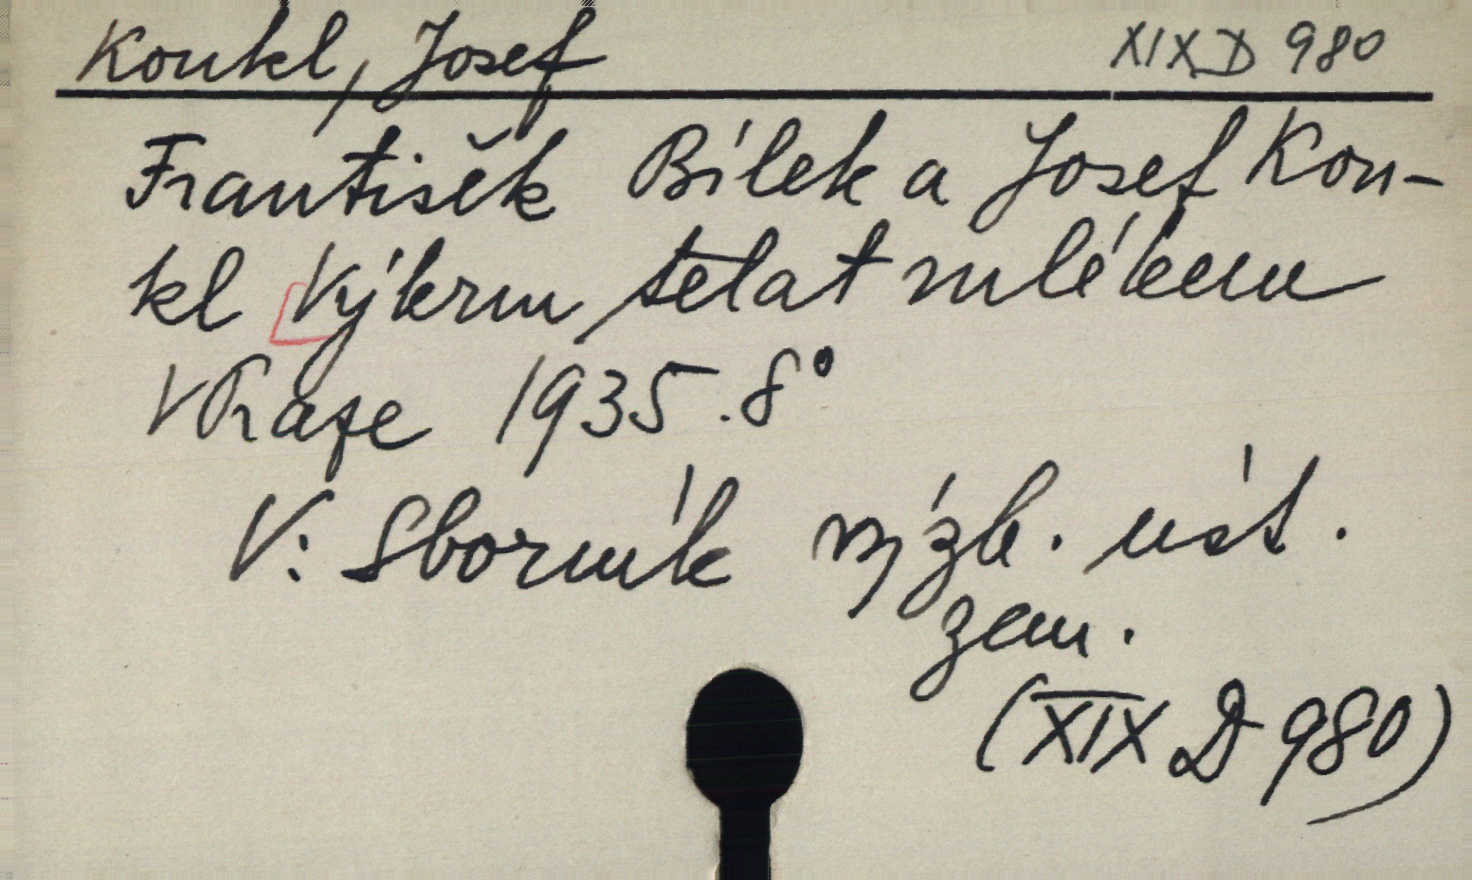 Koukl, Josef XIX D 980
František Bílek a Josef Kou-
kl Výkrm telat mlékem
V Praze 1935. 8°
V: Sborník výzk. úst.
zem.
(XIX D 980)